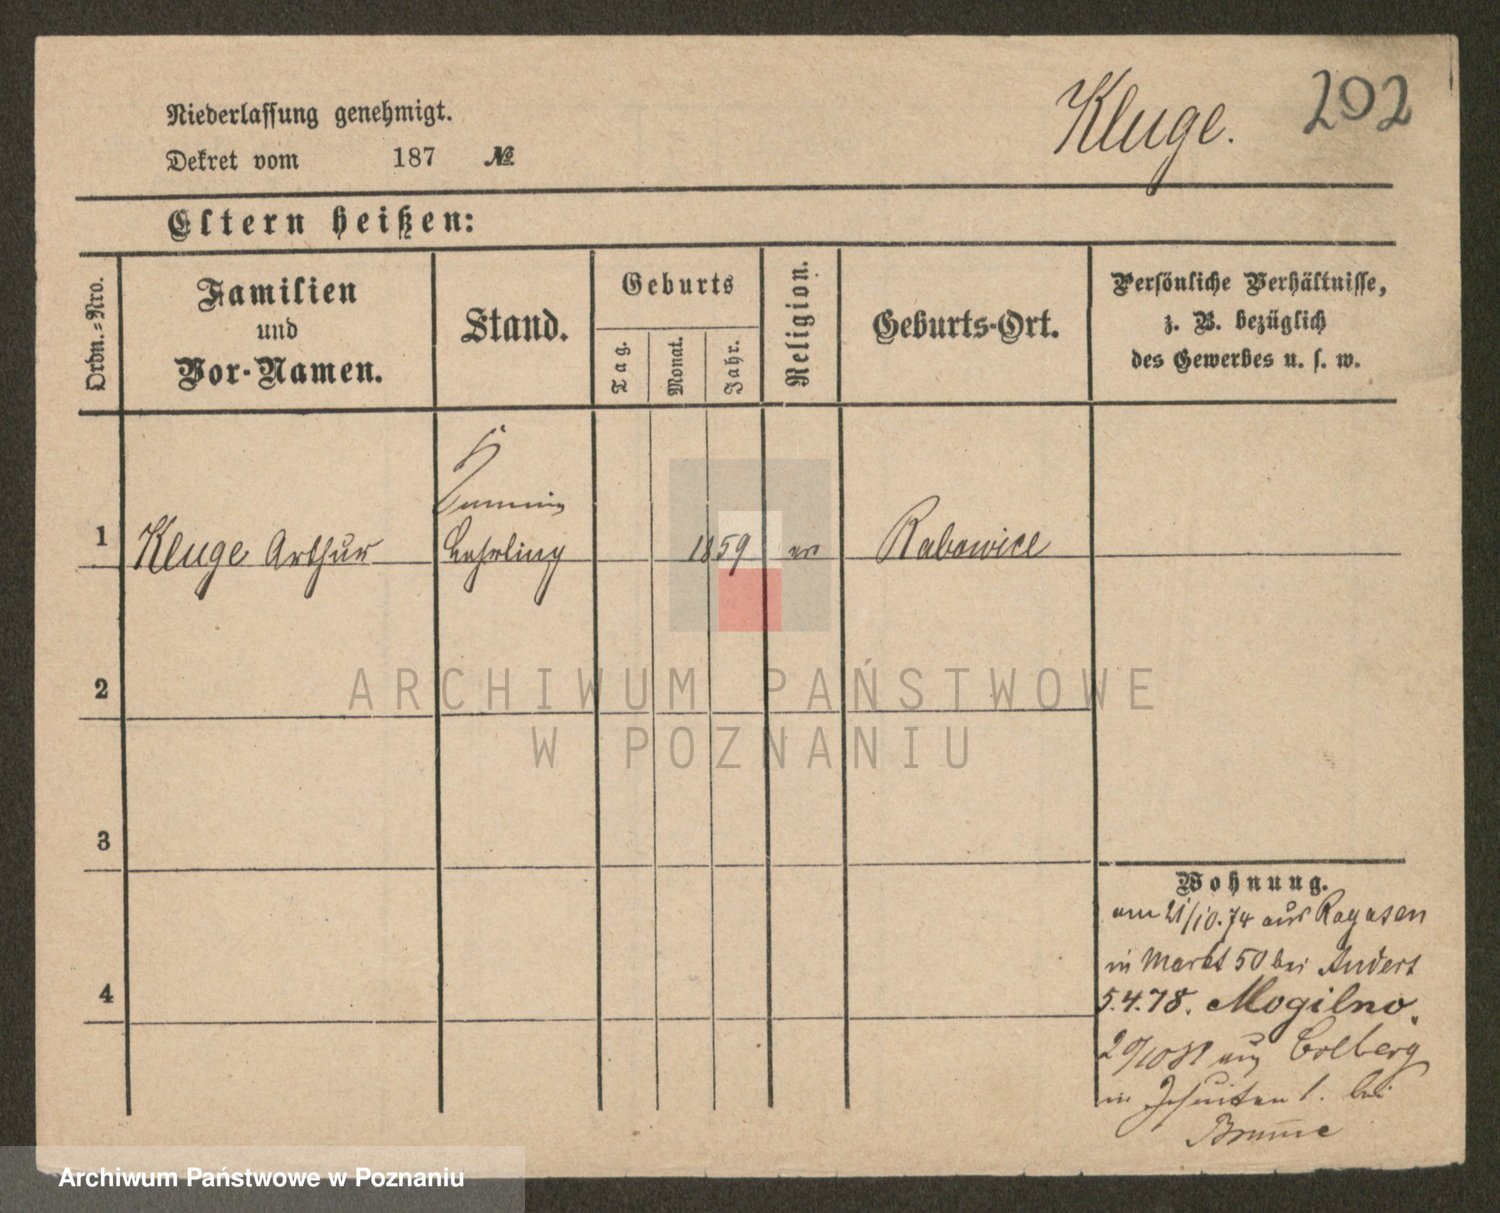 Kluge. 202
Niederlassung genehmigt.
Dekret vom 187 №
Eltern heißen:
Ordn.-Nro.
Familien
und
Vor-Namen.
Stand.
Geburts
Tag.
Monat.
Jahr.
Religion.
Geburts-Ort.
Persönliche Verhältnisse,
z. B. bezüglich
des Gewerbes u. s. w.
1 Kluge Arthur Lehrling 1859 ev Rabowice
2
3
4
Wohnung.
am 21/10.74 aus Rogasen
in Markt 50 bei Andert
5.4.78. Mogilno.
aus Colberg
in Jesuiten 1. bei
ARCHIWUM PAŃSTWOWE
W POZNANIU
Archiwum Państwowe w Poznaniu